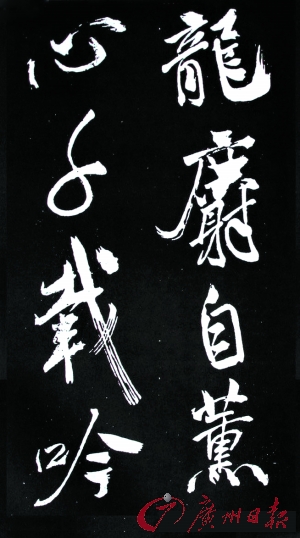 龍麝自薰
心千載吟
廣州日報